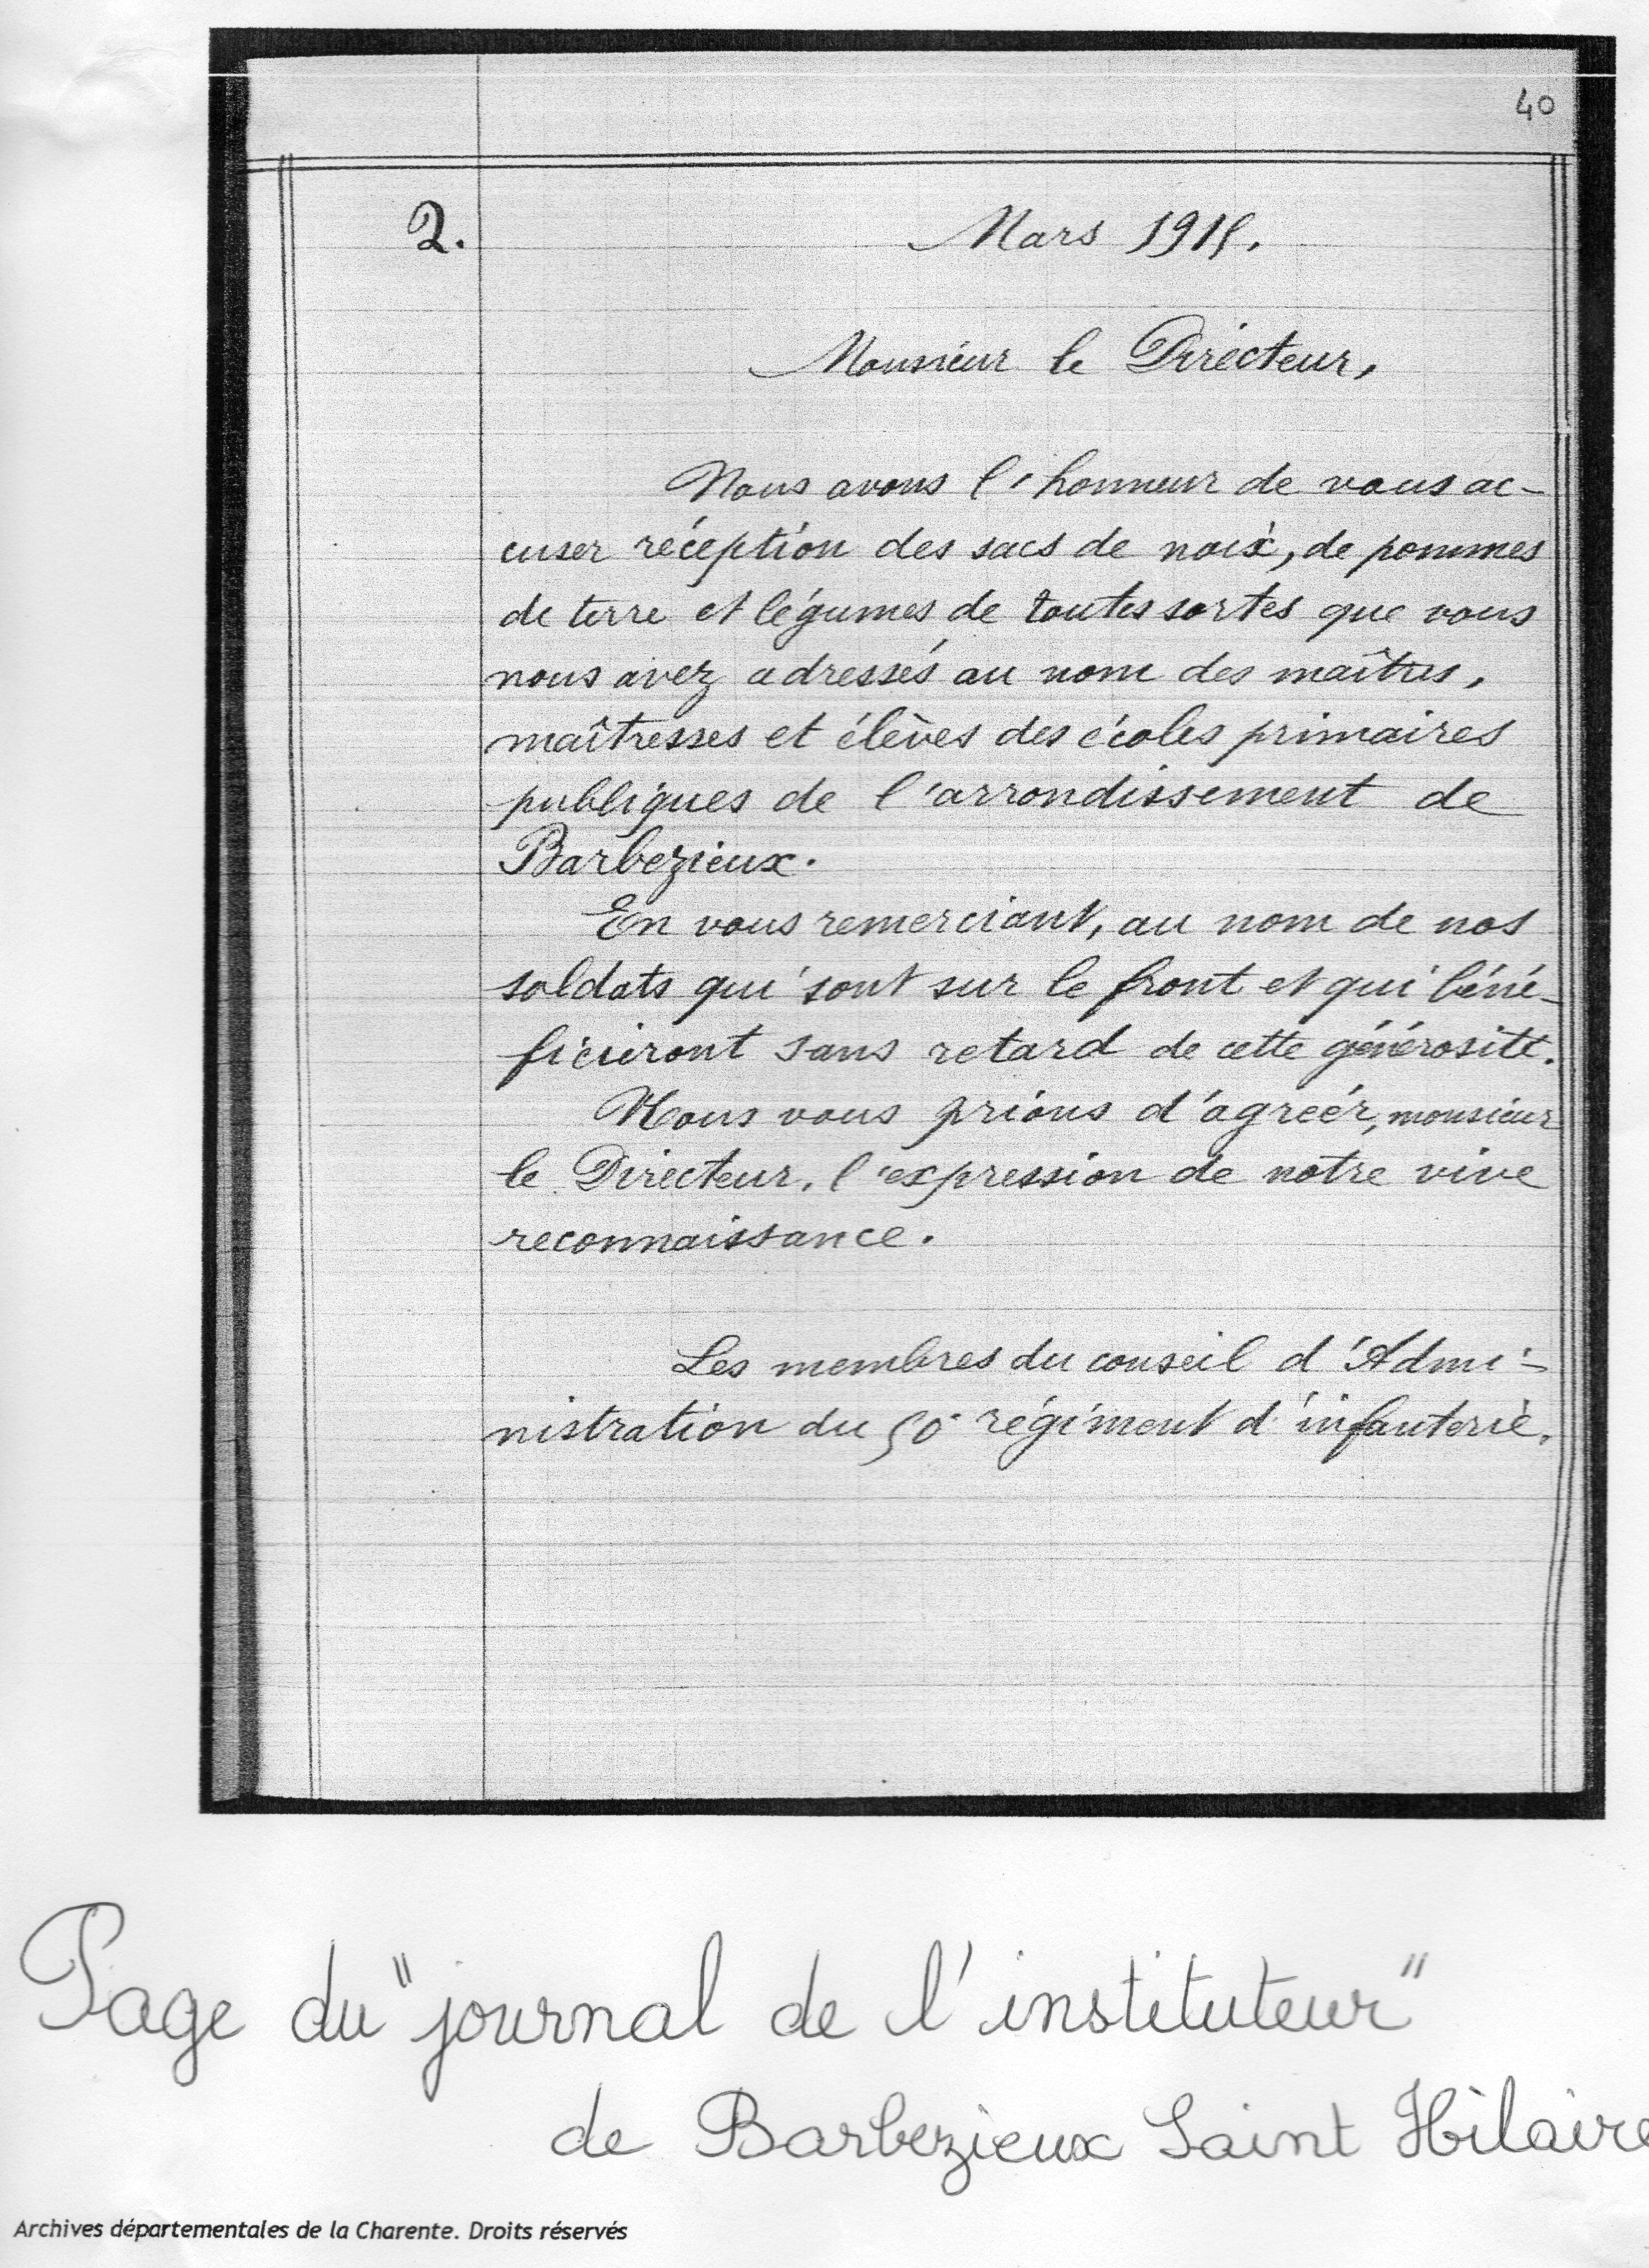 40
2. Mars 1915.
Monsieur le Directeur,
Nous avons l'honneur de vous ac-
cuser réception des sacs de noix, de pommes
de terre et légumes de toutes sortes que vous
nous avez adressés au nom des maîtres,
maîtresses et élèves des écoles primaires
publiques de l'arrondissement de
Barbezieux.
En vous remerciant, au nom de nos
soldats qui sont sur le front et qui béné-
ficieront sans retard de cette générosité.
Nous vous prions d'agréer, monsieur
le Directeur, l'expression de notre vive
reconnaissance.
Les membres du conseil d'Admi-
nistration du 50e régiment d'infanterie.
Page du "journal de l'instituteur"
de Barbezieux Saint Hilaire
Archives départementales de la Charente. Droits réservés